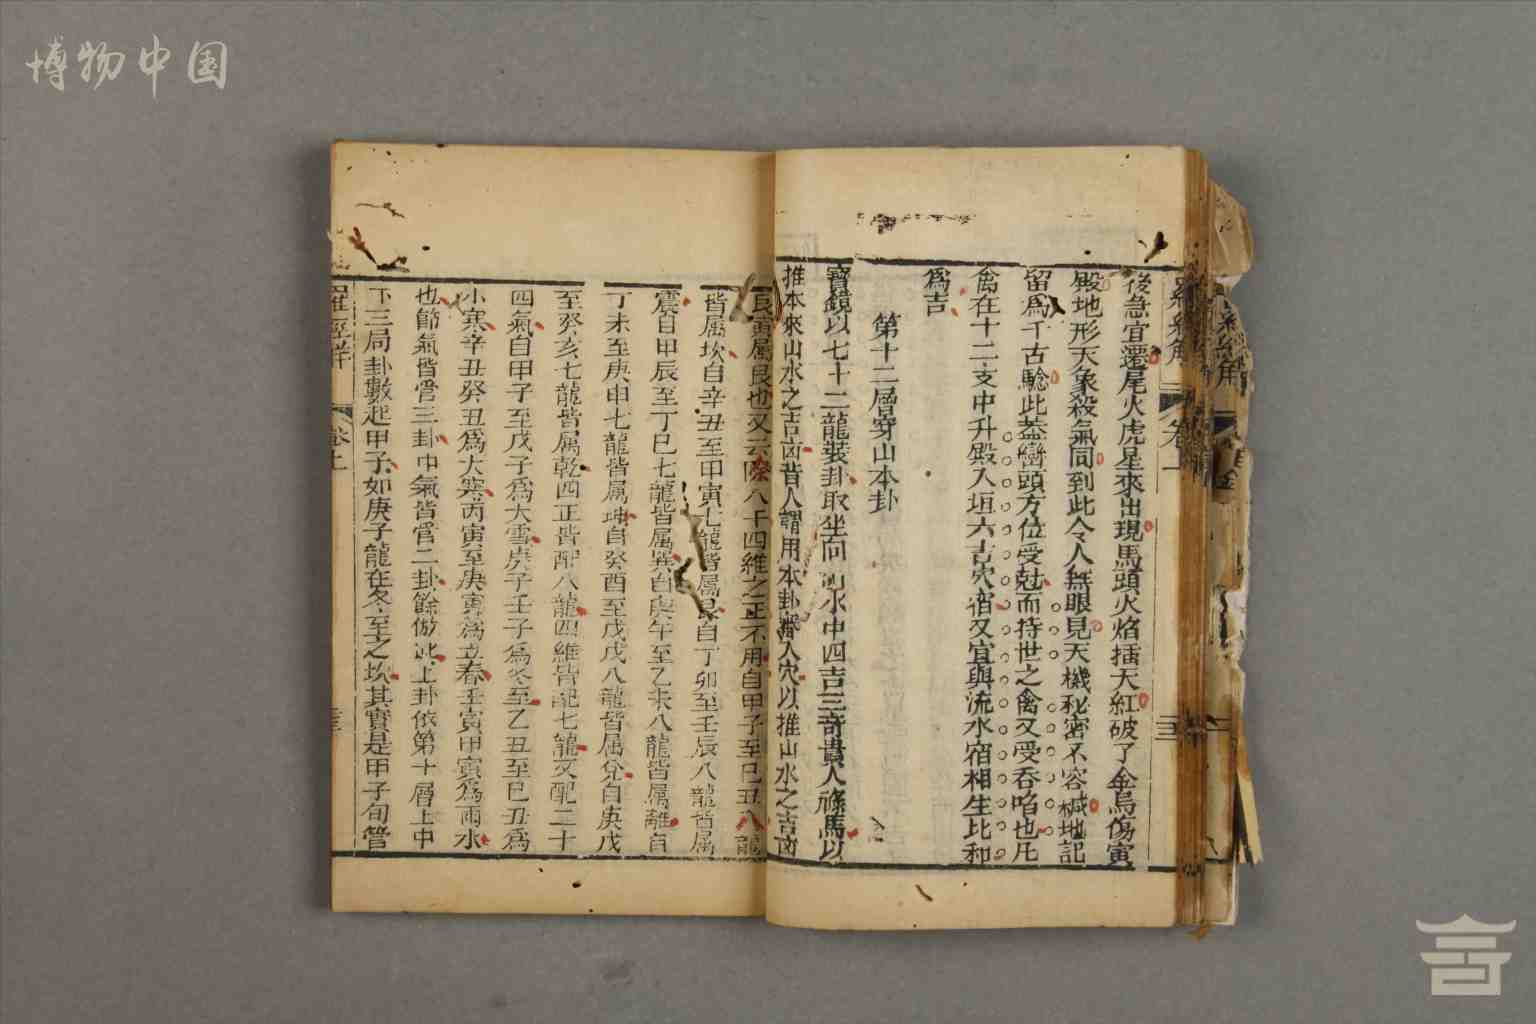 博物中国
後急宜還尾火虎星來出現馬頭火焰插天紅破了金烏傷寅
殿地形天象殺氣同到此令人無眼見天機秘密不容緘地記
留爲千古驗此葢巒頭方位受尅而持世之禽又受吞啗也凡
禽在十二支中升殿入垣六吉穴宿又宜與流水宿相生比和
爲吉
第十二層穿山本卦
寶鏡以七十二龍裝卦取坐向山水中四吉三奇貴人祿馬以
推本來山水之吉凶昔人謂用本卦入穴以推山水之吉凶
艮寅属艮也又云除八干四維之正不用自甲子至巳丑八龍
皆属坎自辛丑至甲寅七龍皆属艮自丁卯至壬辰八龍皆属
震自甲辰至丁巳七龍皆属巽自庚午至乙未八龍皆属離自
丁未至庚申七龍皆属坤自癸酉至戊戌八龍皆属兌自庚戌
至癸亥七龍皆属乾四正皆配八龍四維皆配七龍又配二十
四氣自甲子至戊子爲大雪庚子壬子爲冬至乙丑至巳丑爲
小寒辛丑癸丑爲大寒丙寅至庚寅爲立春壬寅甲寅爲雨水
也節氣皆管三卦中氣皆管二卦餘倣此上卦依第十層上中
下三局卦數起甲子如庚子龍在冬至之坎其實是甲子旬管
羅經解
卷上